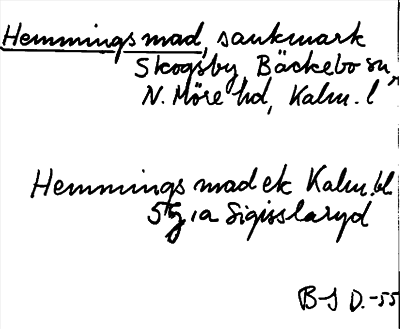 Hemmings mad, sankmark
Skogsby, Bäckebo sn,
N. Möre hd, Kalm. l
Hemmings mad ek Kalm. bl.
5 Sigisslaryd
B-S D.-55